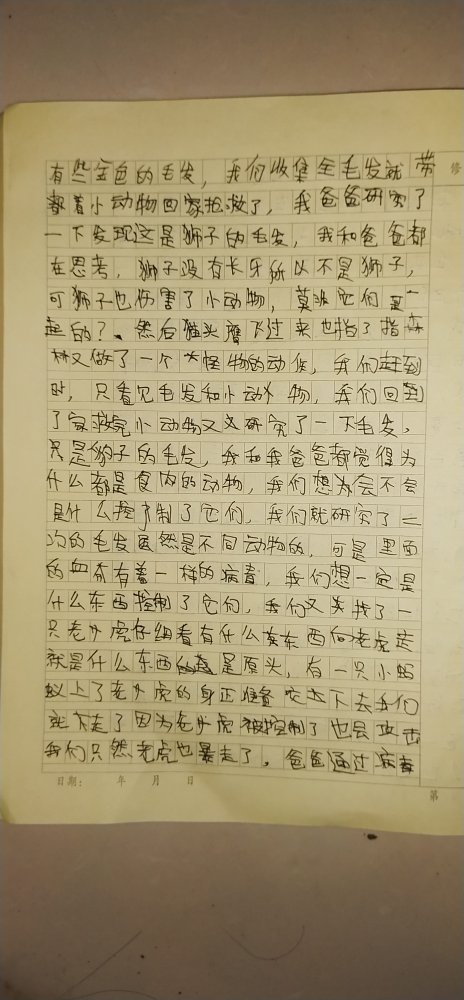 有些金色的毛发，我们收集全毛发就带 修
都着小动物回家抢救了，我爸爸研究了
一下发现这是狮子的毛发，我和爸爸都
在思考，狮子没有长牙所以不是狮子，
可狮子也伤害了小动物，莫非它们是一
起的？然后猫头鹰飞过来也指了指森
林又做了一个大怪物的动作，我们赶到
时，只看见毛发和小动物，我们回到
了家救完小动物又研究了一下毛发，
只是豹子的毛发，我和我爸爸都觉得为
什么都是食肉的动物，我们想为会不会
是什么控制了它们，我们就研究了二
次的毛发虽然是不同动物的，可是里面
的血有着一样的病毒，我们想一定是
什么东西控制了它们，我们又去找了一
只老虎仔细看有什么东西向老虎走
就是什么东西是原头，有一只小蚂
蚁上了老虎的身正准备咬下去我们
就下走了因为老虎被控制了也会攻击
我们只然老虎也暴走了。爸爸通过病毒
日期： 年 月 日 第